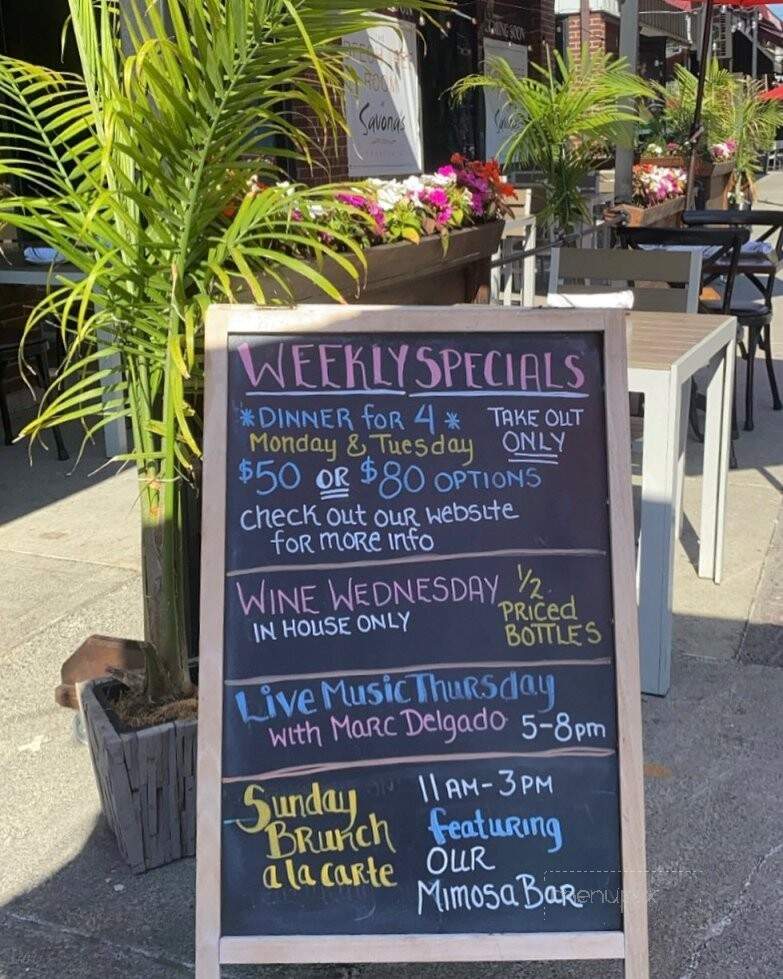 Savona's
WEEKLY SPECIALS
*DINNER for 4 *
TAKE OUT
ONLY
Monday & Tuesday
$50 OR $80 OPTIONS
check out our website
for more info
WINE WEDNESDAY
IN HOUSE ONLY
1/2
PRICed
BOTTLES
Live Music Thursday
with Marc Delgado 5-8pm
Sunday
BRunch
a la carte
11AM-3PM
featuring
OUR
Mimosa BAR